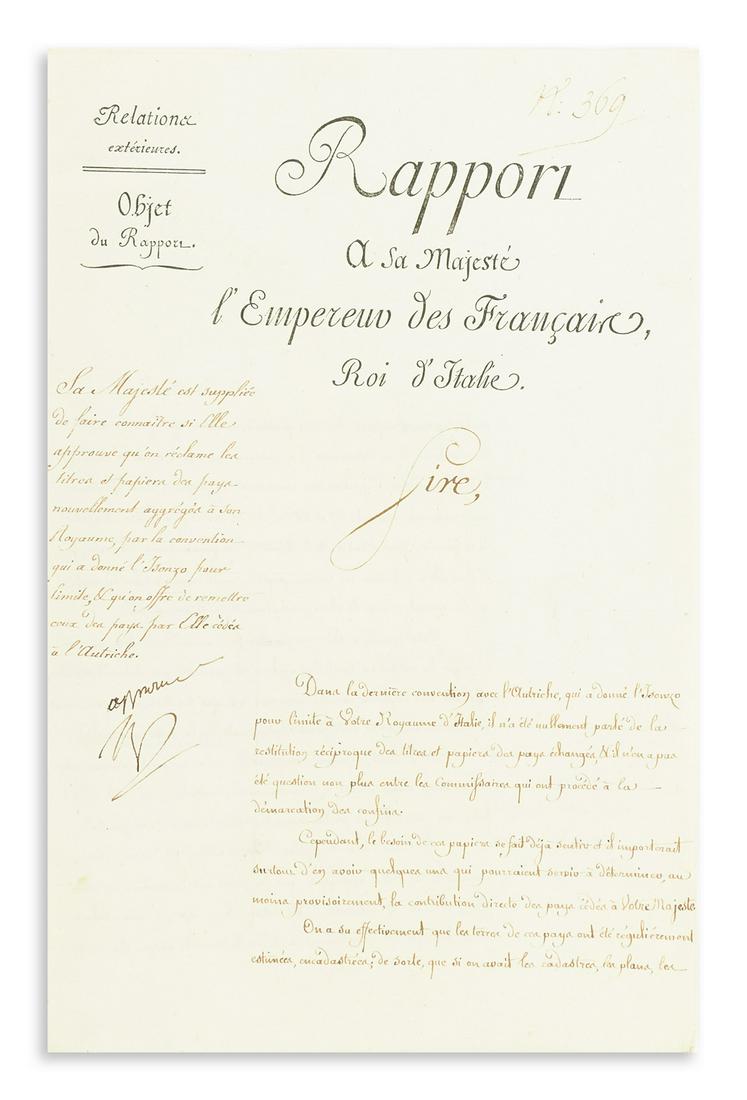 N.º 369
Relations
extérieures.
Objet
du Rapport.
Rapport
A Sa Majesté
l'Empereur des Français,
Roi d'Italie.
Sa Majesté est suppliée
de faire connaître si Elle
approuve qu'on réclame les
titres et papiers des pays
nouvellement aggrégés à son
Royaume, par la convention
qui a donné l'Isonzo pour
limite, & qu'on offre de remettre
ceux des pays par Elle cédés
à l'Autriche.
approuvé
Sire,
Dans la dernière convention avec l'Autriche, qui a donné l'Isonzo
pour limite à Votre Royaume d'Italie, il n'a été nullement parlé de la
restitution réciproque des titres et papiers des pays échangés, & il n'en a pas
été question non plus entre les Commissaires qui ont procédé à la
démarcation des confins.
Cependant, le besoin de ces papiers se fait déjà sentir et il importerait
surtout d'en avoir quelques uns qui pourraient servir à déterminer, au
moins provisoirement, la contribution directe des pays cédés à Votre Majesté
On a su effectivement que les terres de ces pays ont été régulièrement
estimées, encadastrées; de sorte, que si on avait les cadastres, les plans, les